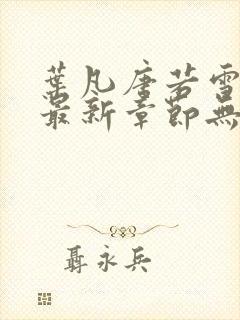 葉凡唐若雪
最新章節無
聶永兵